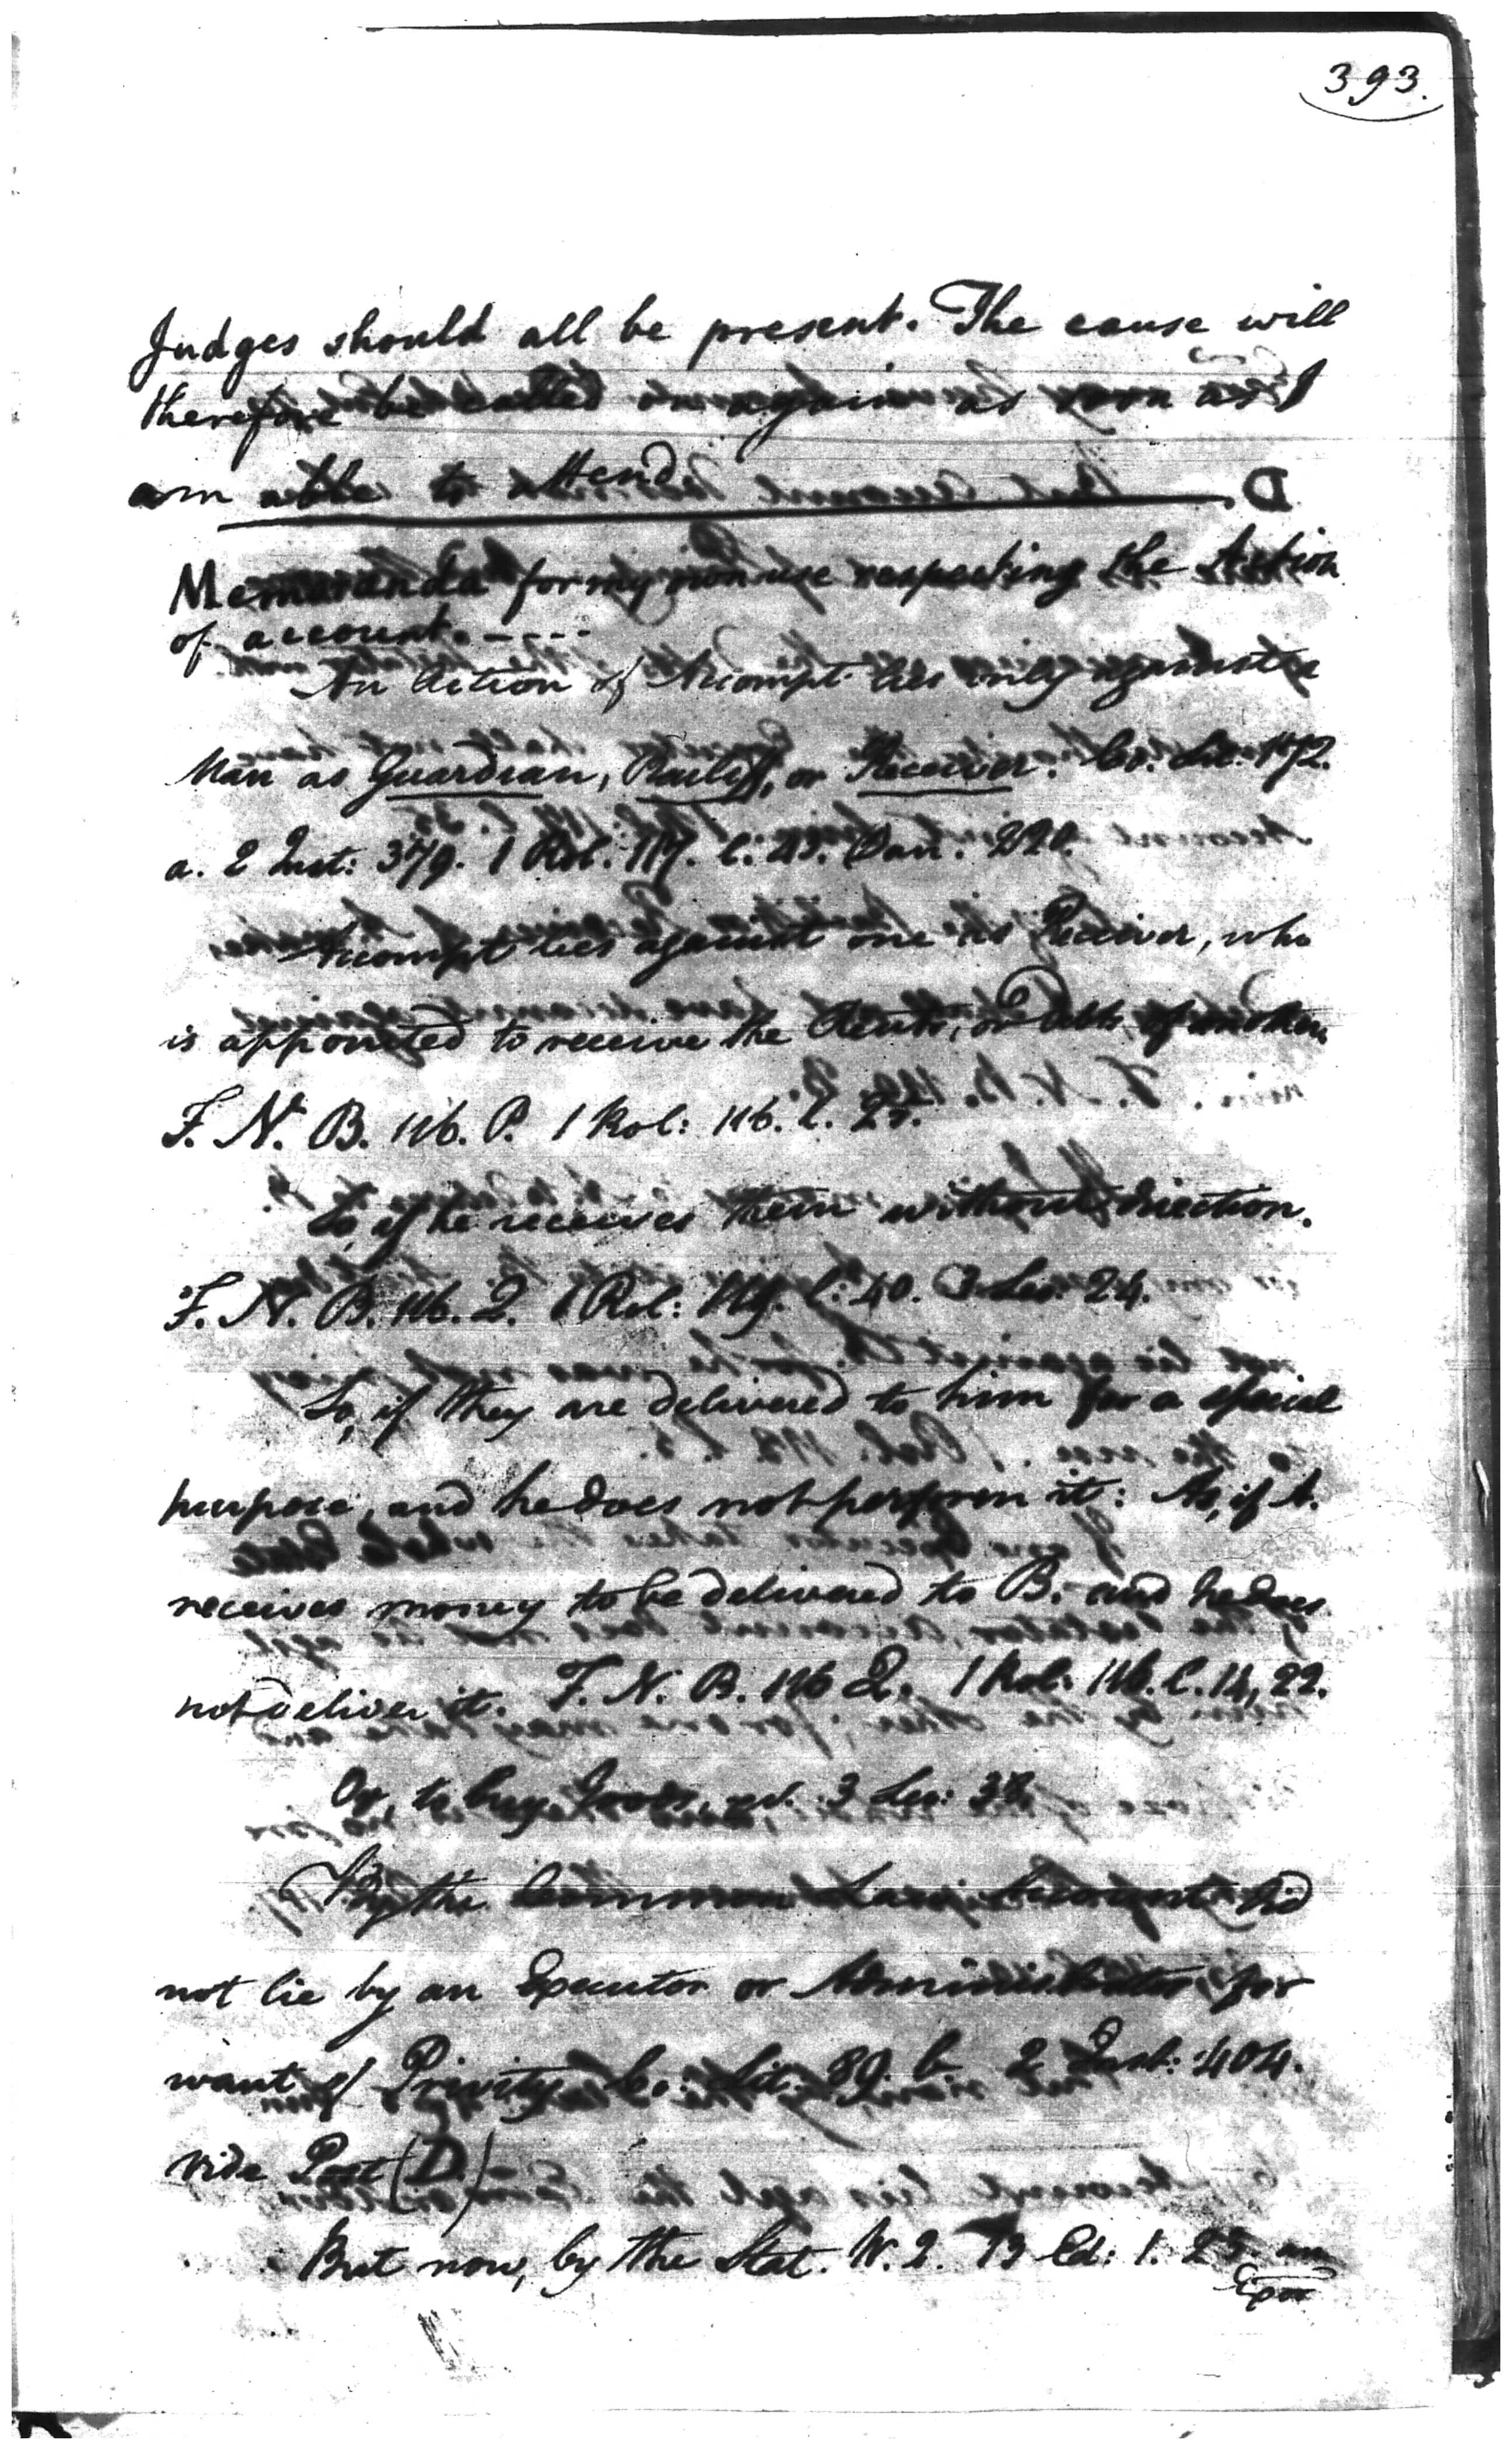 393.
Judges should all be present. The cause will
therefore be called on again as soon as I
am able to attend
Memoranda for my own use respecting the Action
of account. - - - -
An Action of Accompt lies only against a
Man as Guardian, Bailiff, or Receiver. Co. Lit: 172.
a. 2 Inst: 379. 1 Rol: 119. l: 45. Dan. 220.
Accompt lies against one as Receiver, who
is appointed to receive the Rents, or Debts of another.
F. N. B. 116. P. 1 Rol: 116. l. 25.
So, if he receives them without direction.
F. N. B. 116. Q. 1 Rol: l: 40. 3 Leo: 24.
So, if they are delivered to him for a special
purpose, and he does not perform it: As, if A.
receives money to be delivered to B. and he does
not deliver it. F. N. B. 116 Q. 1 Rol: 116. l. 14, 22.
Or, to buy Goods, 3 Leo: 38.
By the Common Law, Accompt did
not lie by an Executor or Administrator for
want of Privity Co: Lit. 89. b 2 Inst: 404.
vide Post (D.)
But now, by the Stat. W. 2. 13 Ed: 1. 23. an
Exor